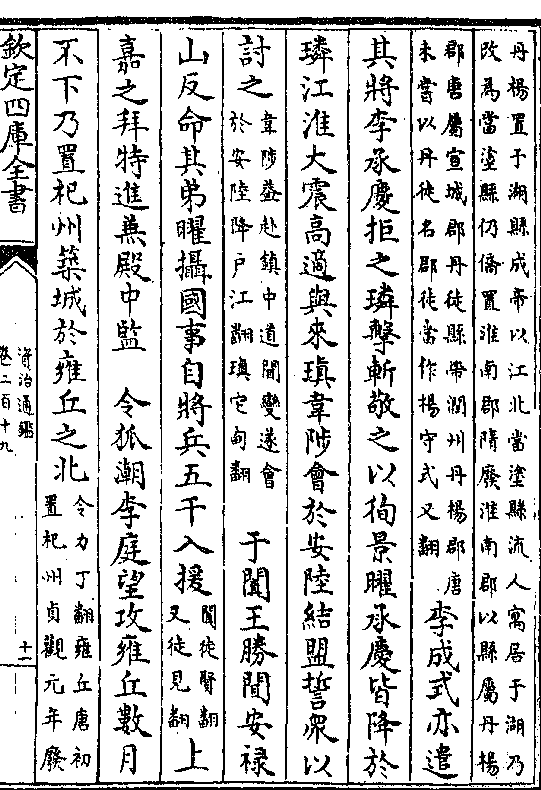 丹楊置于湖縣成帝以江北當塗縣流人寓居于湖乃
改為當塗縣仍僑置淮南郡隋廢淮南郡以縣屬丹楊
郡唐屬宣城郡丹徒縣帶潤州丹楊郡唐
未嘗以丹徒名郡徒當作楊守式又翻
李成式亦遣
其將李承慶拒之璘擊斬敬之以徇景曜承慶皆降於
璘江淮大震高適與來瑱韋陟會於安陸結盟誓衆以
討之
韋陟葢赴鎮中道聞變遂會
於安陸降戶江翻瑱它甸翻
于闐王勝聞安禄
山反命其弟曜攝國事自將兵五千入援
闐徒賢翻
又徒見翻
上
嘉之拜特進兼殿中監　令狐潮李庭望攻雍丘數月
不下乃置杞州築城於雍丘之北
令力丁翻雍丘唐初
置杞州貞觀元年廢
欽定四庫全書
資治通鑑
卷二百十九
十一